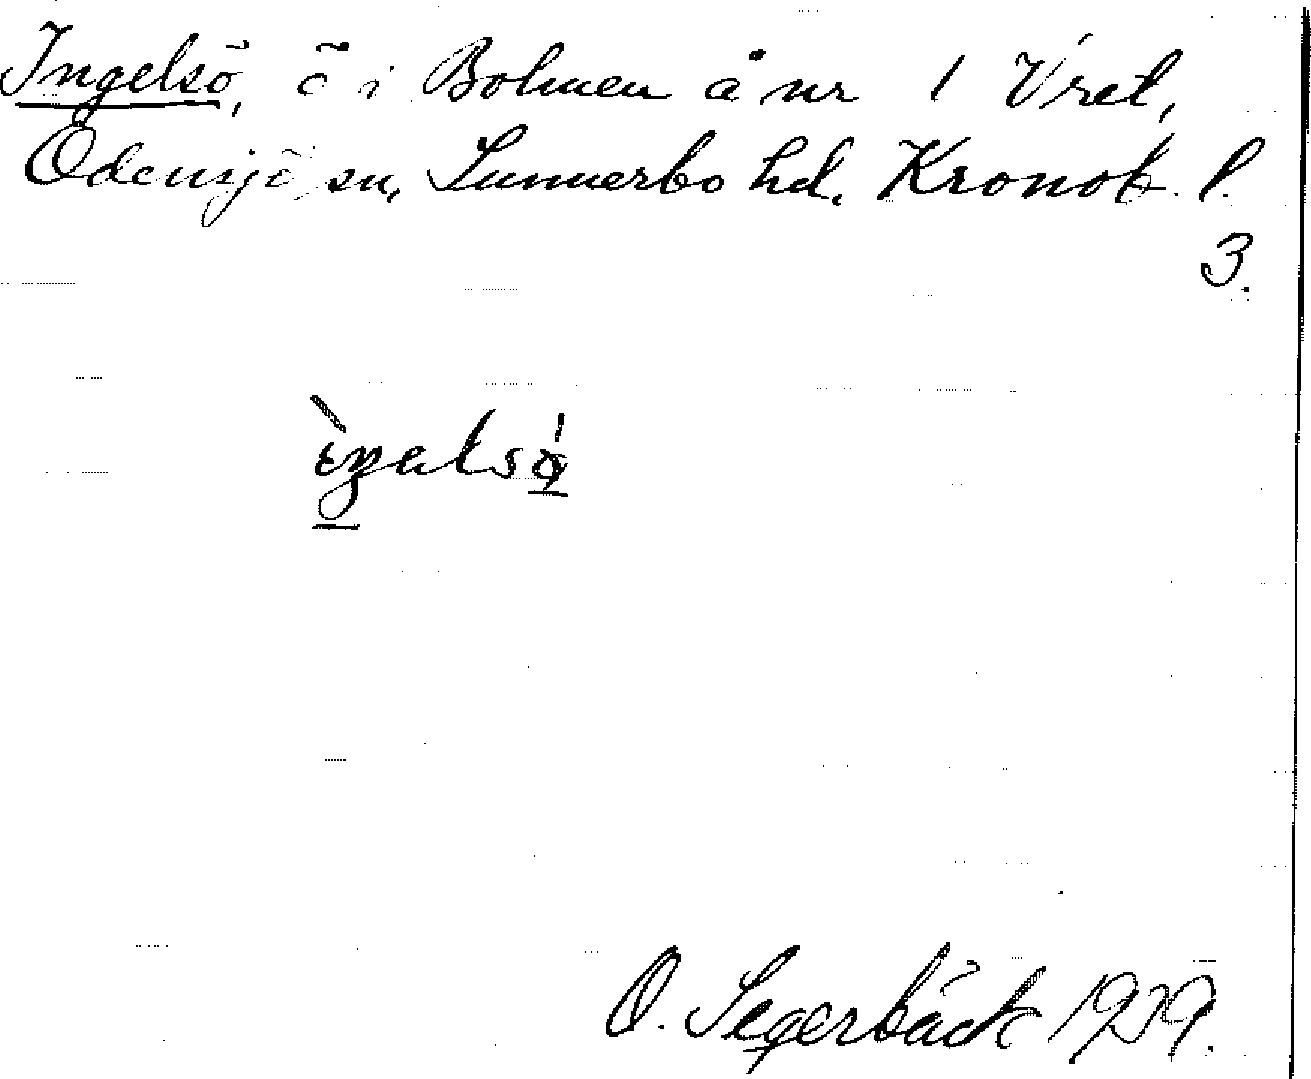 Ingelsö, ö i Bolmen å nr 1 Vret,
Odensjö sn, Sunnerbo hd. Kronob. l.
3.
O. Segerbäck 1929.